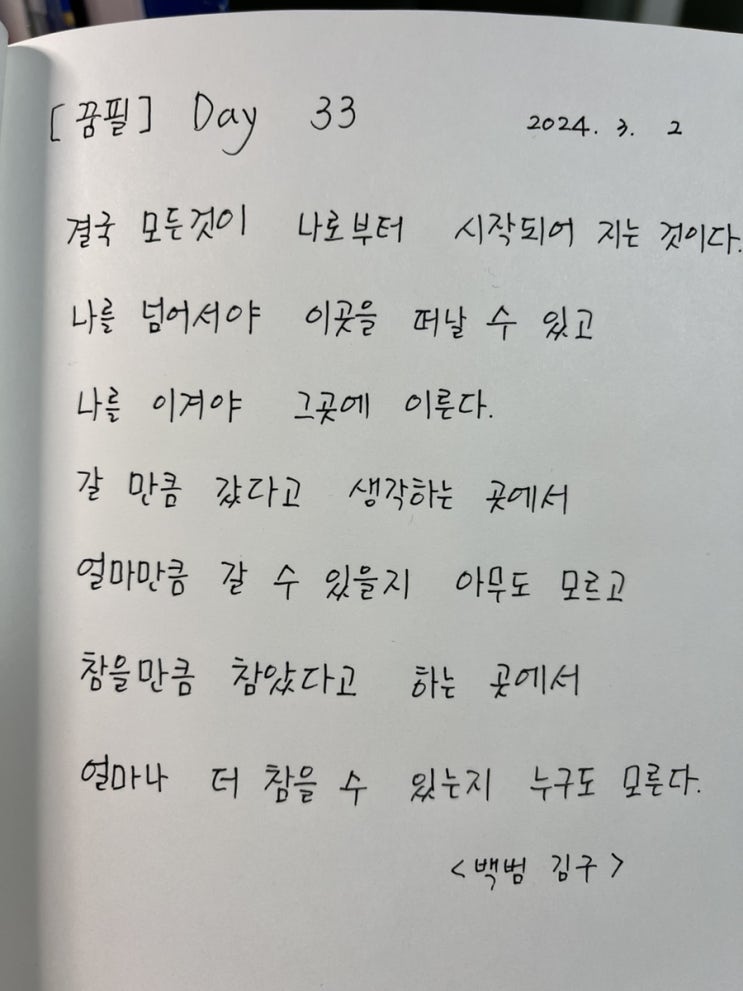 [꿈필] Day 33 2024. 3. 2
결국 모든것이 나로부터 시작되어 지는 것이다.
나를 넘어서야 이곳을 떠날 수 있고
나를 이겨야 그곳에 이룬다.
갈 만큼 갔다고 생각하는 곳에서
얼마만큼 갈 수 있을지 아무도 모르고
참을만큼 참았다고 하는 곳에서
얼마나 더 참을 수 있는지 누구도 모른다.
<백범 김구>